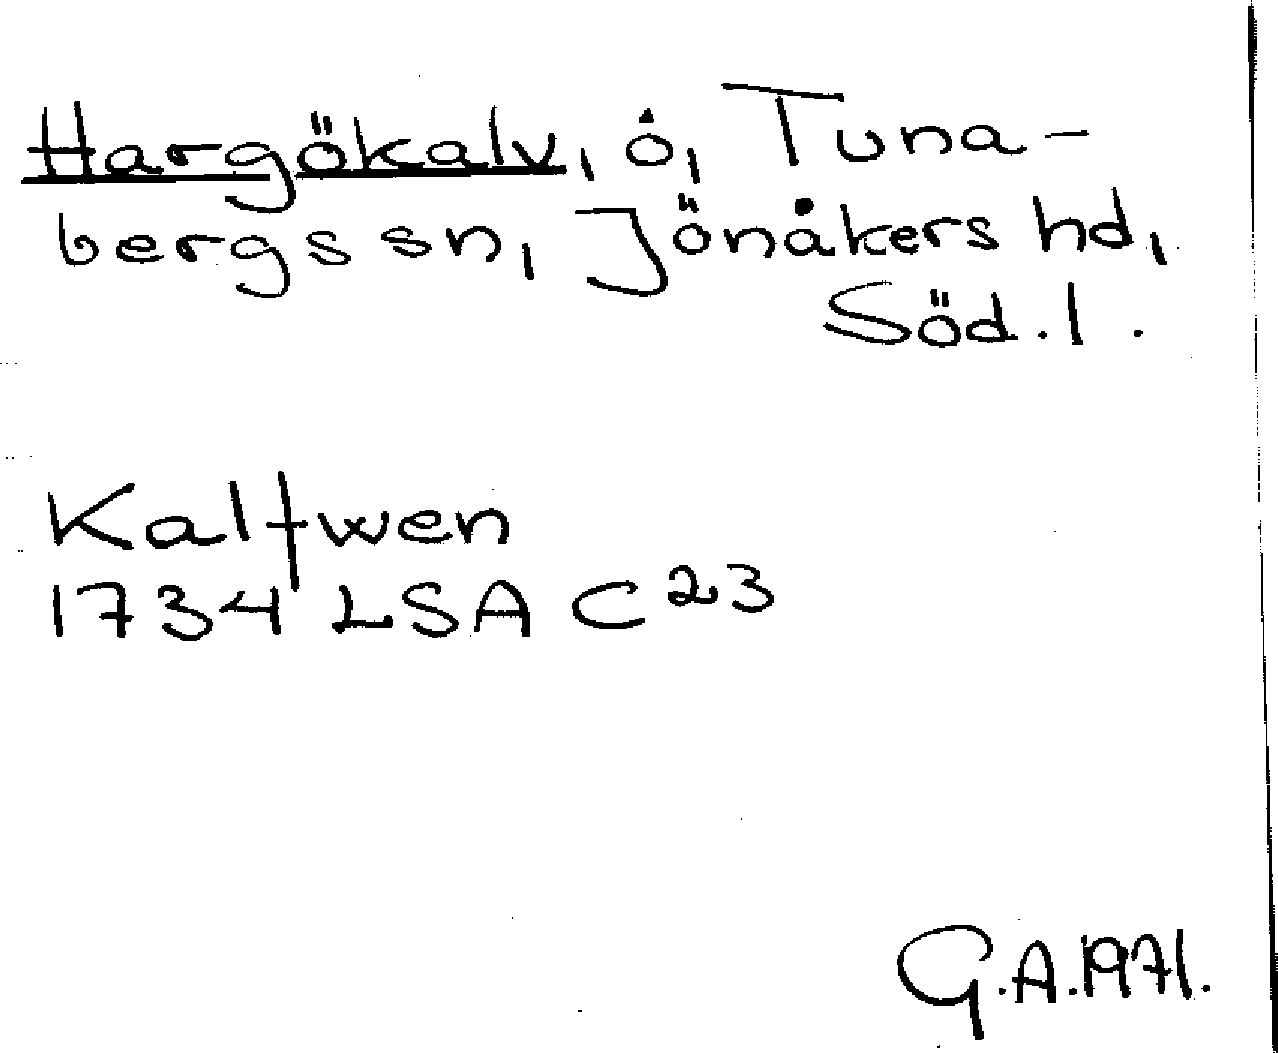 Hargökalv, ö, Tuna-
bergs sn, Jönåkers hd,
Söd. l.
Kalfwen
1734 LSA C23
G.A.1971.